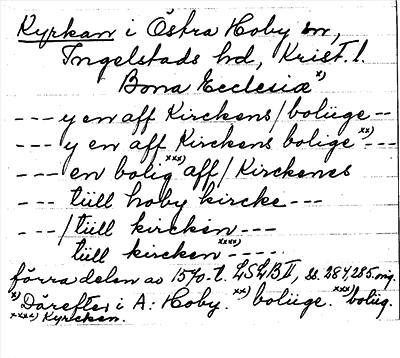 Kyrkan i Östra Hoby sn,
Ingelstads hd, Krist. l.
Bona Ecclesiæ x)
--- y en aff Kirckens/boliige --
--- y en aff Kirckens bolige xx) ---
--- en bolig xxx) aff/Kirckenes
--- tiill hoby kircke ---
--- /tiill kircken ---
tiill kircken xxxx) ----
förra delen av 1570-t. LSLB II, ss. 284, 285.
x) Därefter i A: Hoby. xx) boliige. xxx) boliig.
xxxx) Kyrcken.